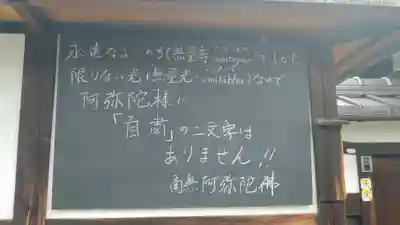 永遠なるいのち(無量寿 amitāyus)でした
限りない光(無量光・amitābha)なので
阿弥陀様に
「自粛」の二文字は
ありません!!
南無阿弥陀佛